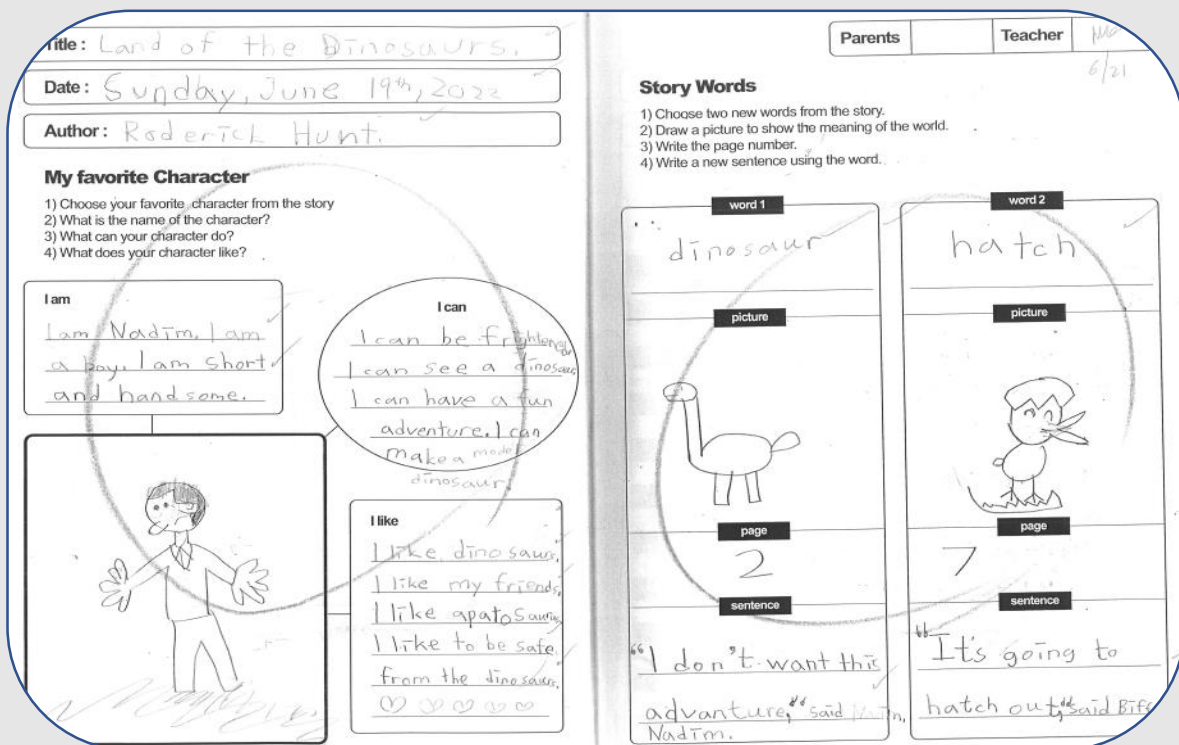 Title : Land of the Dinosaurs.
Date : Sunday, June 19th, 2022
Author : Roderick Hunt.
My favorite Character
1) Choose your favorite character from the story
2) What is the name of the character?
3) What can your character do?
4) What does your character like?
I am
I am Nadim. I am
a boy. I am short
and handsome.
I can
I can be frightened
I can see a dinosaur
I can have a fun
adventure. I can
make a model
dinosaur.
I like
I like dinosaurs.
I like my friends.
I like apatosaurus
I like to be safe
from the dinosaurs.
Parents
Teacher
6/21
Story Words
1) Choose two new words from the story.
2) Draw a picture to show the meaning of the world.
3) Write the page number.
4) Write a new sentence using the word.
word 1
dinosaur
picture
page
2
sentence
"I don't want this
advanture," said
Nadim.
word 2
hatch
picture
page
7
sentence
"It's going to
hatch out," said Biff